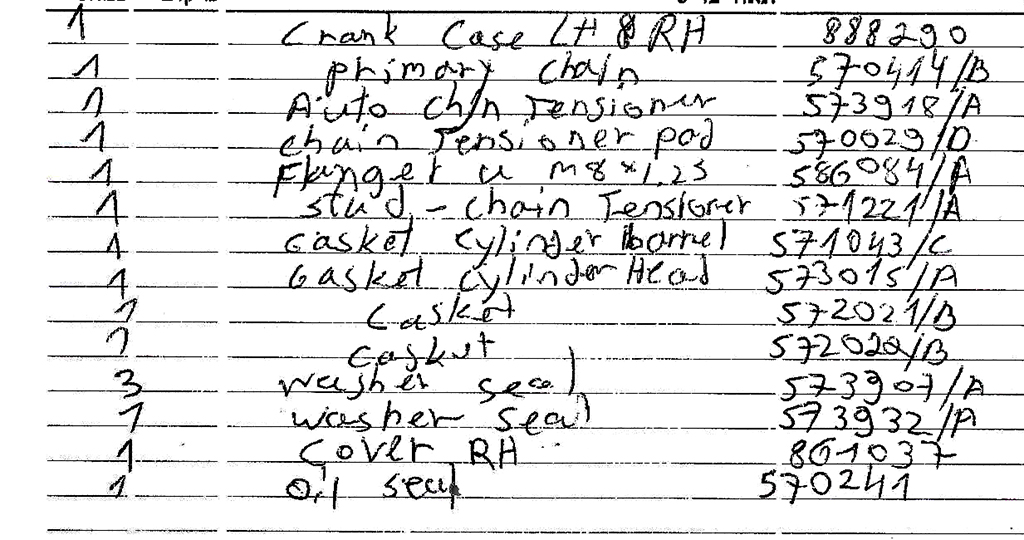 1 Crank Case LH & RH 888290
1 primary chain 570414/B
1 Auto chin Tensioner 573918/A
1 chain Tensioner pad 570029/D
1 M8 x 1.25 586084/A
1 stud - chain Tensioner 571221/A
1 Gasket cylinder barrel 571043/C
1 Gasket cylinder Head 573015/A
1 Gasket 572021/B
1 Gasket 572020/B
3 washer seal 573907/A
1 washer seal 573932/A
1 Cover RH 861037
1 Oil seal 570241